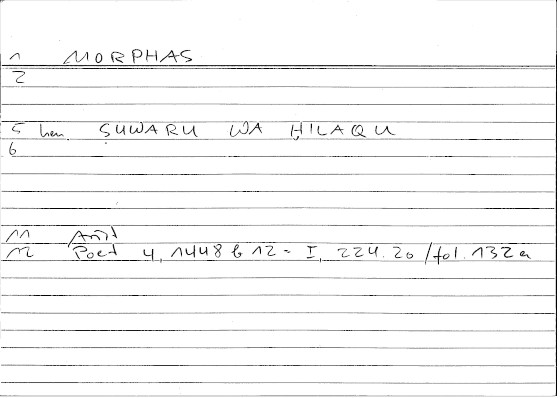 1 MORPHAS
2
5 hen. SUWARU WA HILAQU
6
11 Arist
12 Poet 4, 1448 b 12 = I, 224.20 / fol. 132a